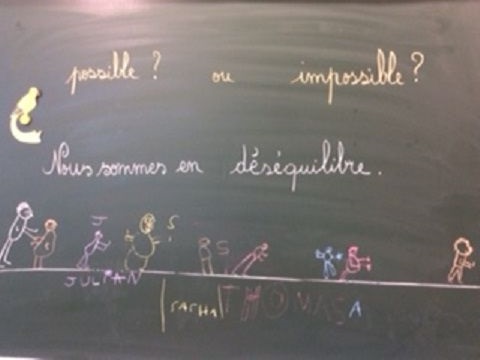 possible ? ou impossible ?
Nous sommes en déséquilibre.
J S S
JULPAN
SACHA THOMAS A